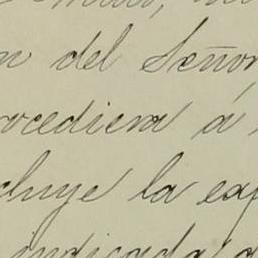 n del Señor
rocediera á
cluye la exp
indicada a